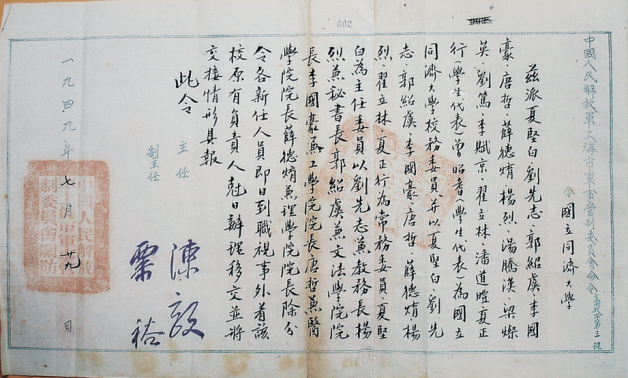 002
中國人民解放軍上海市軍事管制委員會命令
令國立同濟大學
茲派夏堅白、劉先志、郭紹虞、李國
豪、唐哲、薛德焴、楊烈、湯騰漢、梁燦
英、劉篤、李賦京、翟立林、潘道皚、夏正
行(學生代表)、曾昭耆(學生代表)為國立
同濟大學校務委員、并以夏堅白、劉先
志、郭紹虞、李國豪、唐哲、薛德焴、楊
烈、翟立林、夏正行為常務委員、夏堅
白為主任委員、以劉先志兼教務長、楊
烈兼秘書長、郭紹虞兼文法學院院
長、李國豪兼工學院院長、唐哲兼醫
學院院長、薛德焴兼理學院院長、除分
令各新任人員即日到職視事外着該
校原有負責人尅日辦理移交並將
交接情形具報
此令
主任
陳毅
副主任
粟裕
一九四九年七月廿九日